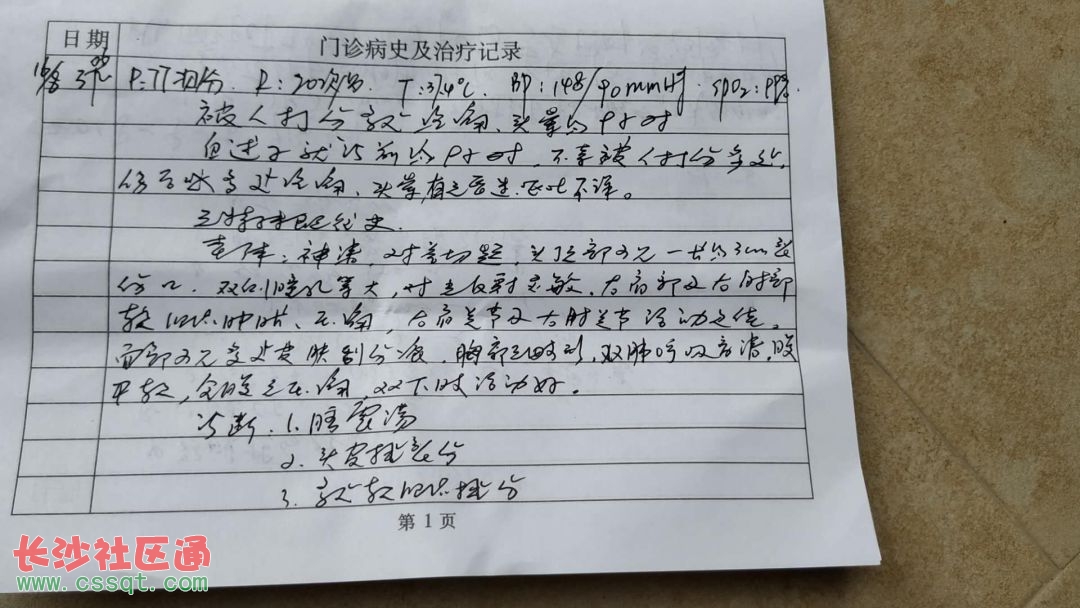 日期 门诊病史及治疗记录
P:77次/分. R:20次/分. T:37.4℃. BP:148/90mmHg. SPO2:99%.
被人打伤多处疼痛、头晕约 小时
患者于就诊前约 小时,不幸被人打伤多处,
伤后 多处疼痛、头晕,
查体:神清,对答切题,头顶部可见一长约3cm裂
伤口.双侧瞳孔等大,对光反射灵敏.右肩部及右肘部
软组织肿胀、压痛,右肩关节及右肘关节活动 .
面部可见多处皮肤划伤痕,胸部 ,双肺呼吸音清,腹
平软,全腹无压痛,双下肢活动好.
诊断:1.脑震荡
2.头皮挫裂伤
3.多处软组织挫伤
第1页
长沙社区通
www.cssqt.com